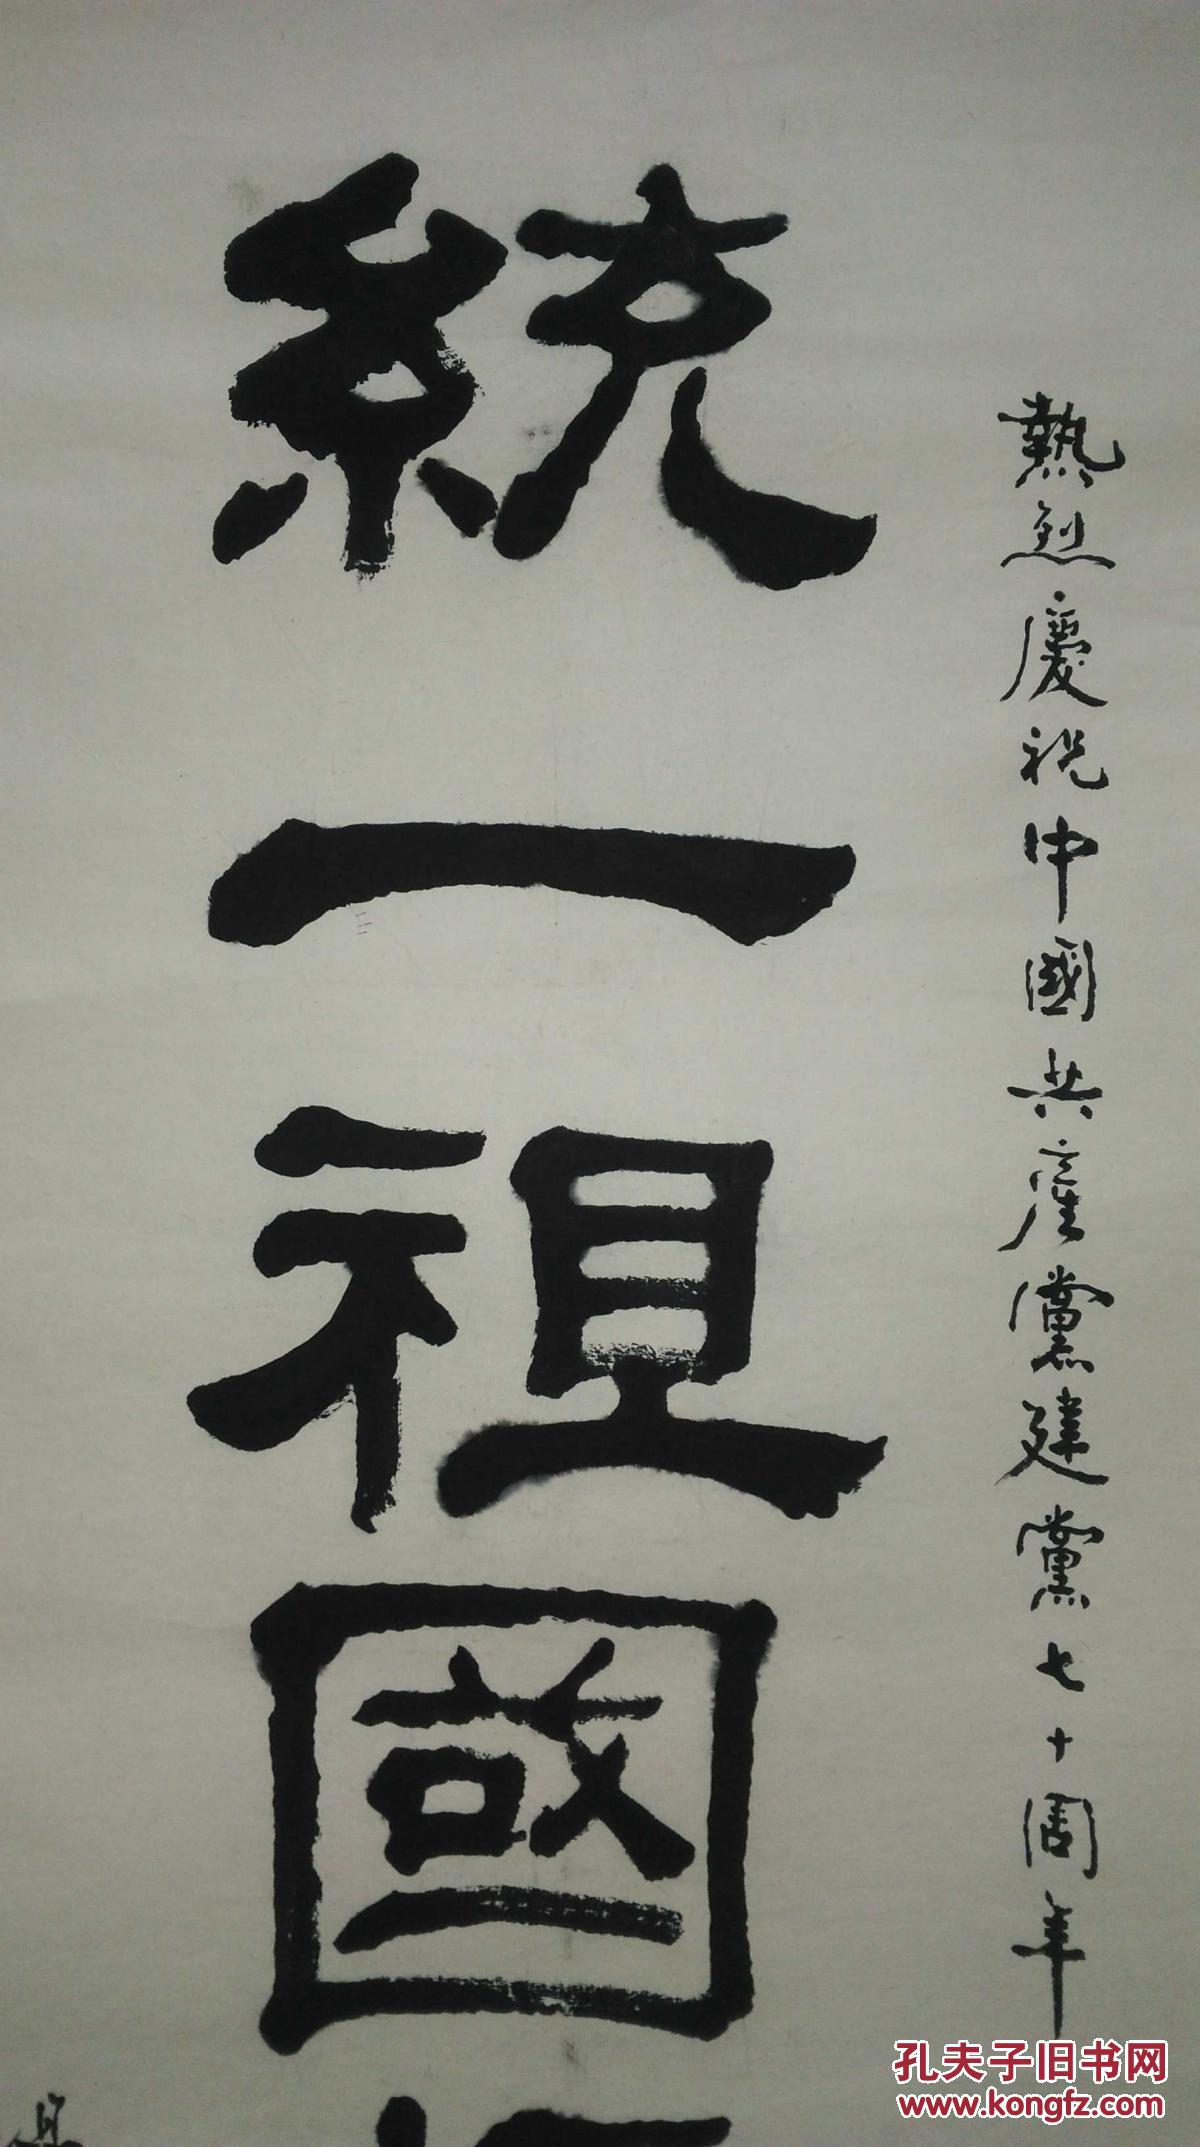 熱烈慶祝中國共産黨建黨七十周年
統一祖國
孔夫子旧书网
www.kongfz.com